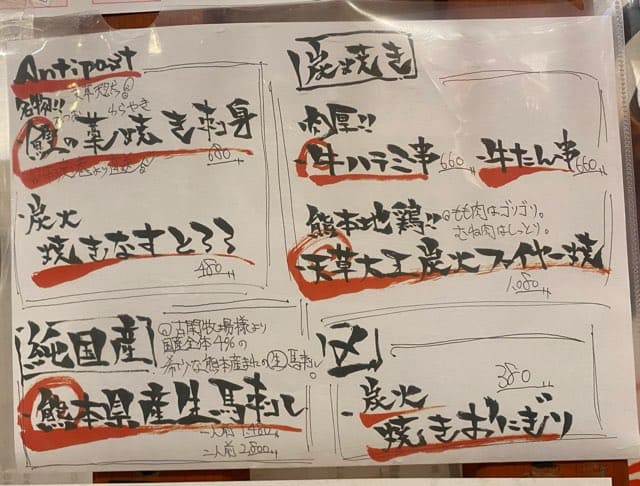 Antipast
名物!!
わらやき
鰹の藁焼き刺身
680
・炭火
焼きなすとろろ
480
炭焼き
肉厚!!
・牛ハラミ串 660
・牛たん串 660
熊本地鶏!! @もも肉はゴリゴリ。
むね肉はしっとり。
・天草大王 炭火ファイヤー焼
1,080
純国産
古閑牧場様より
国産全体4%の
希少な熊本産まれの生馬刺し。
・熊本県産生馬刺し
一人前 1,480
二人前 2,800
〆
380
・炭火
焼きおにぎり